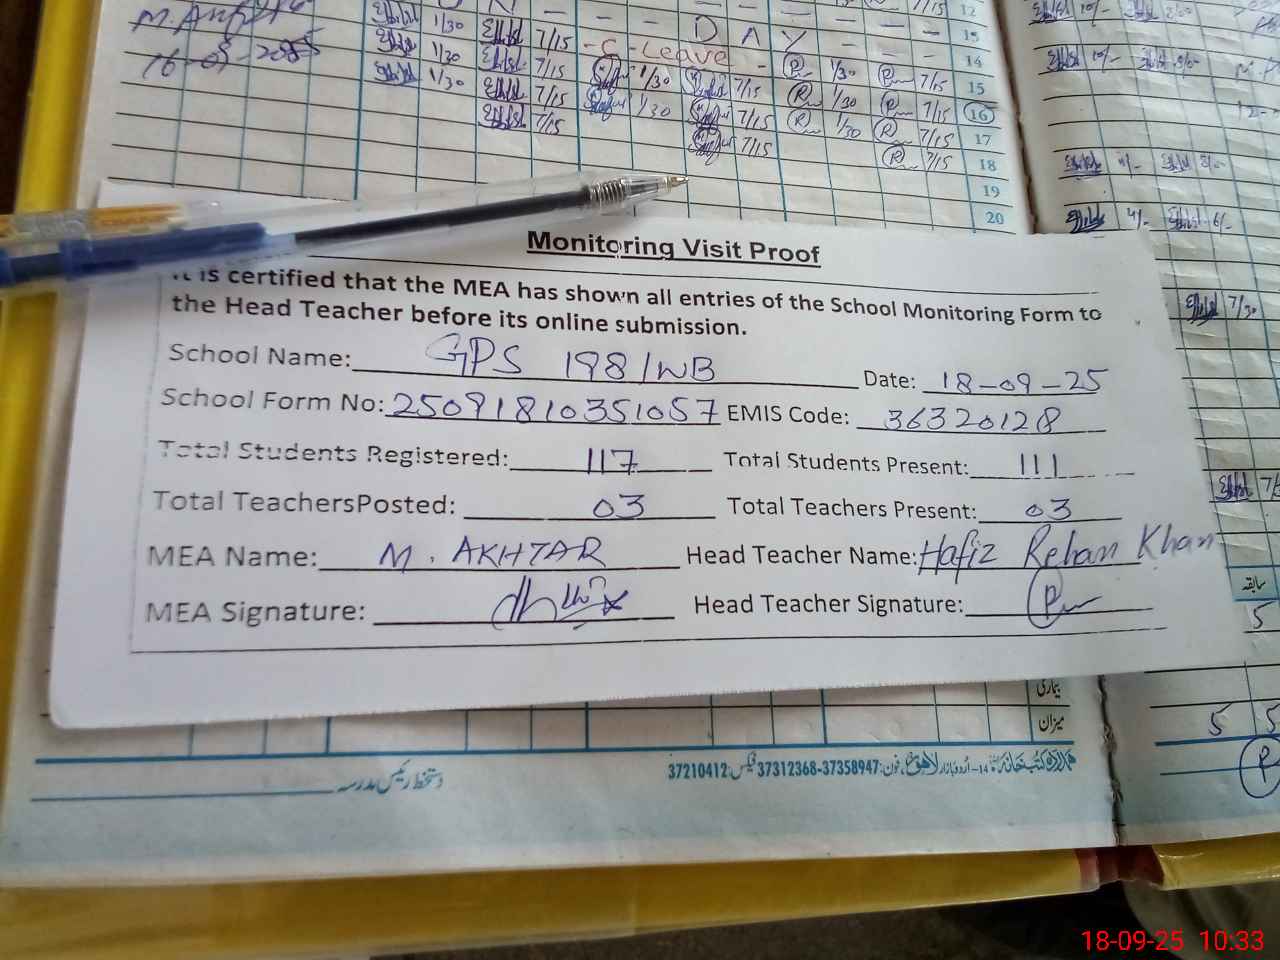 16-09-2025
D A Y
C-Leave
1/30 7/15 12
1/30 7/15 13
14
1/30 7/15 1/30 7/15 1/30 7/15 15
7/15 1/30 7/15 1/30 7/15 16
7/15 7/15 1/30 7/15 17
7/15 7/15 18
19
20
Monitoring Visit Proof
It is certified that the MEA has shown all entries of the School Monitoring Form to
the Head Teacher before its online submission.
School Name: GPS 198/WB Date: 18-09-25
School Form No: 25091810351057 EMIS Code: 36320128
Total Students Registered: 117 Total Students Present: 111
Total TeachersPosted: 03 Total Teachers Present: 03
MEA Name: M. AKHTAR Head Teacher Name: Hafiz Rehan Khan
MEA Signature: Head Teacher Signature:
سابقہ
5
بیماری
میزان
5 5
ہمدرد کتب خانہ 14-اردو بازار لاہور فون: 37358947-37312368 فیکس: 37210412
دستخط رئیس مدرسہ
18-09-25 10:33